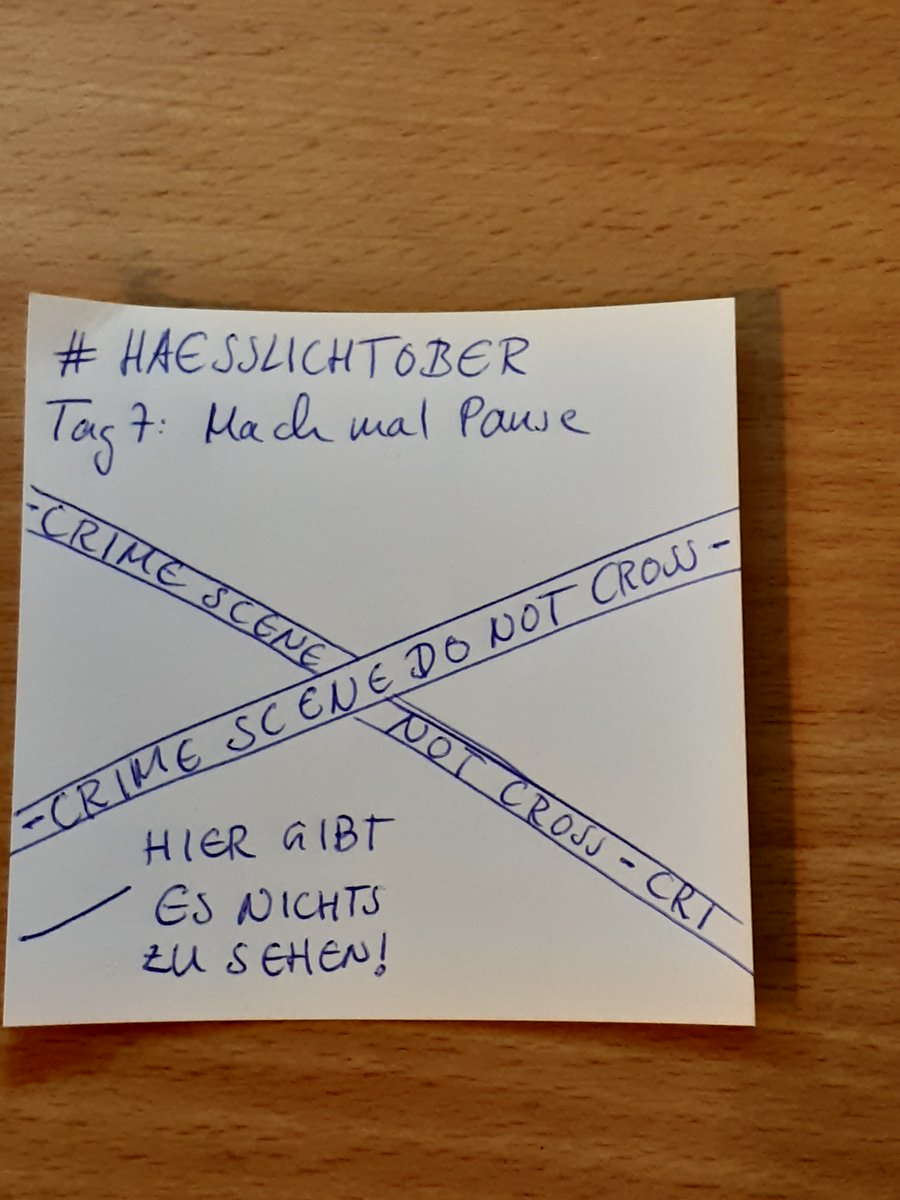 # HAESSLICHTOBER
Tag 7: Mach mal Pause
-CRIME SCENE
NOT CROSS - CRI
-CRIME SCENE DO NOT CROSS-
HIER GIBT
ES NICHTS
ZU SEHEN!